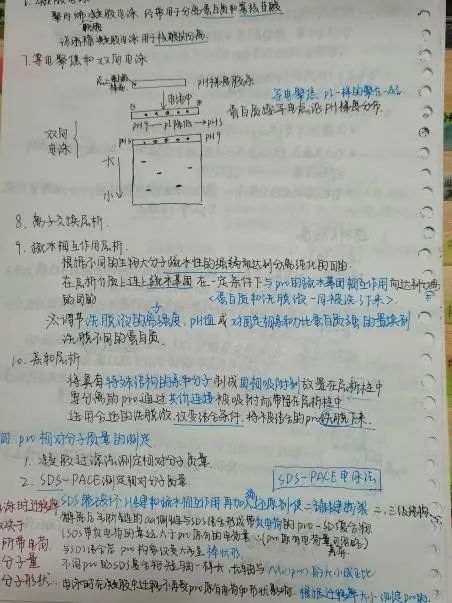 聚丙烯酰胺凝胶电泳 经常用于分离蛋白质和寡核苷酸
琼脂糖凝胶电泳用于核酸的分离.
7. 等电聚焦和双向电泳
pH梯度胶条
电泳中
等电聚焦 pI一样的聚在一起
蛋白质按等电点沿pH梯度分布.
pH9
pH3
双向
电泳
pH3
pH9
大
小
8. 离子交换层析.
9. 疏水相互作用层析.
根据不同的生物大分子疏水性的
在层析介质上连上疏水基团 在一定条件下与pro的疏水基团相互作用而达到分离
的目的 <蛋白质和洗脱液一同被洗下来>
调节洗脱液的离子强度、pH值或
洗脱不同的蛋白质.
10. 亲和层析.
将具有特殊结构的亲和分子制成固相吸附剂放置在层析柱中
要分离的pro通过共价连接被吸附却带留在层析柱中
选用合适的洗脱液,改变结合条件,将被结合的pro洗脱下来.
四 pro相对分子质量的测定
1. 凝胶过滤法测定相对分子质量
2. SDS-PACE测定相对分子质量.
SDS-PACE电泳法
SDS能破坏H键和疏水相互作用 再加入还原剂使二硫键断裂 二、三级结构
解离后的 侧链与SDS结合形成带负电荷的pro-SDS复合物
(SDS带负电荷的量远大于pro原有的电荷量∴(pro原电荷量可忽略)
与SDS结合后pro构象改变为呈棒状形.
不同pro的SDS复合物短轴一样大 长轴与Mr(pro)的大小成正比
电泳时在凝胶中迁移不再受pro原有电荷和形状影响. 根据迁移率大小测定pro的
所带电荷.
分子量
分子形状